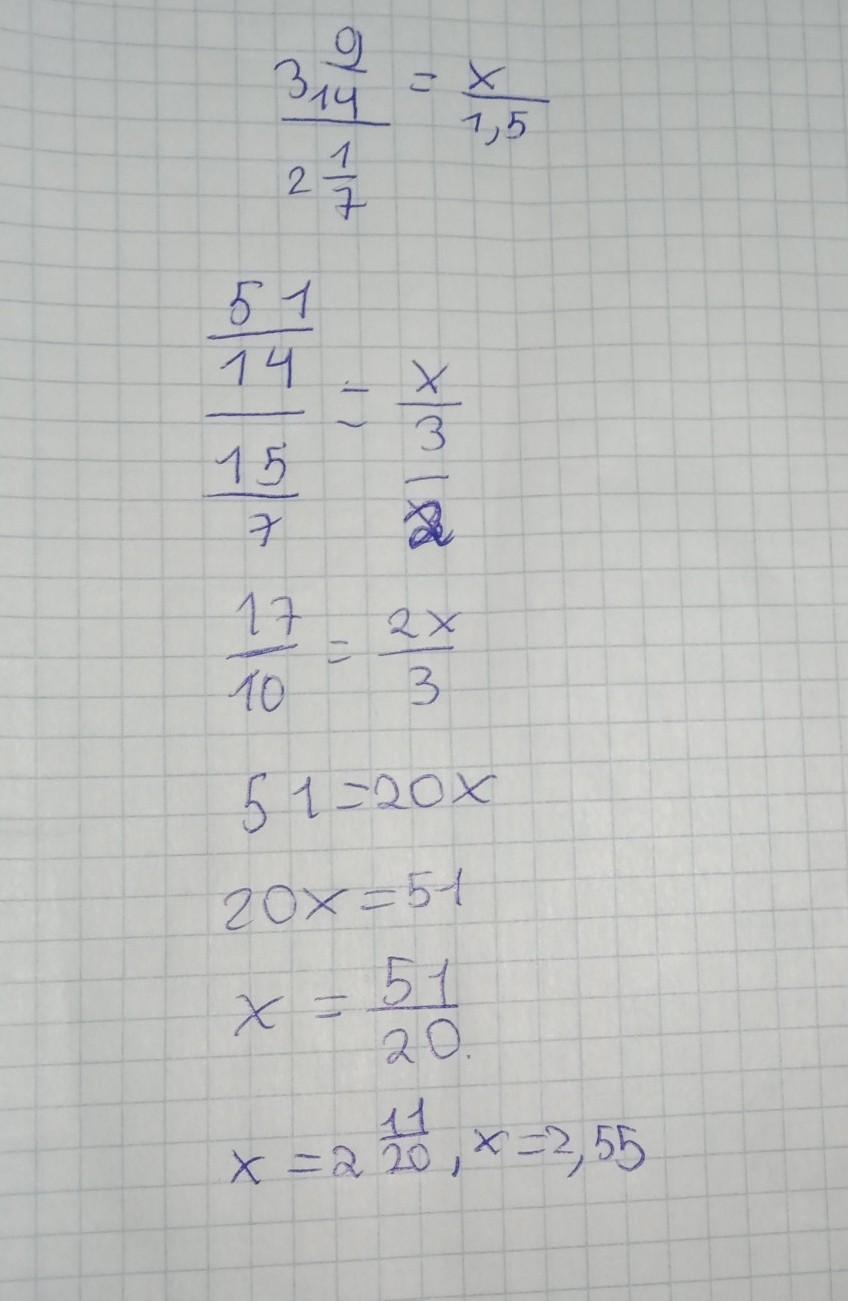 3 9/14 / 2 1/7 = x/1,5
51/14 / 15/7 = x / 3/2
17/10 = 2x/3
51=20x
20x=51
x = 51/20.
x = 2 11/20, x=2,55